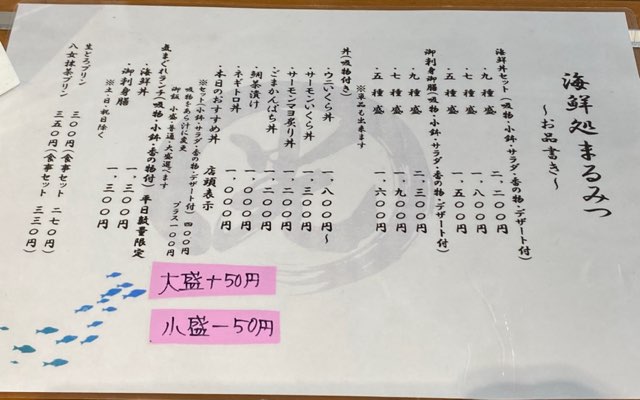 海鮮処まるみつ
～お品書き～
海鮮丼セット(吸物・小鉢・サラダ・香の物・デザート付)
・九種盛 二、二〇〇円
・七種盛 一、八〇〇円
・五種盛 一、五〇〇円
御刺身御膳(吸物・小鉢・サラダ・香の物・デザート付)
・九種盛 二、三〇〇円
・七種盛 一、九〇〇円
・五種盛 一、六〇〇円
※単品も出来ます
丼(吸物付き)
・ウニいくら丼 一、八〇〇円～
・サーモンいくら丼 一、三〇〇円
・サーモンマヨ炙り丼 一、二〇〇円
・ごまかんぱち丼 一、二〇〇円
・鯛茶漬け 一、〇〇〇円
・ネギトロ丼 一、〇〇〇円
・本日のおすすめ丼 店頭表示
※セット(小鉢・サラダ・香の物・デザート付) 四〇〇円
吸物をあら汁に変更 プラス一〇〇円
御飯 小盛・普通・大盛選べます
気まぐれランチ(吸物・小鉢・香の物付) 平日数量限定
・海鮮丼 一、三〇〇円
・御刺身膳 一、三〇〇円
※土・日・祝日除く
生とろプリン 三〇〇円(食事セット 二七〇円)
八女抹茶プリン 三五〇円(食事セット 三三〇円)
大盛+50円
小盛-50円